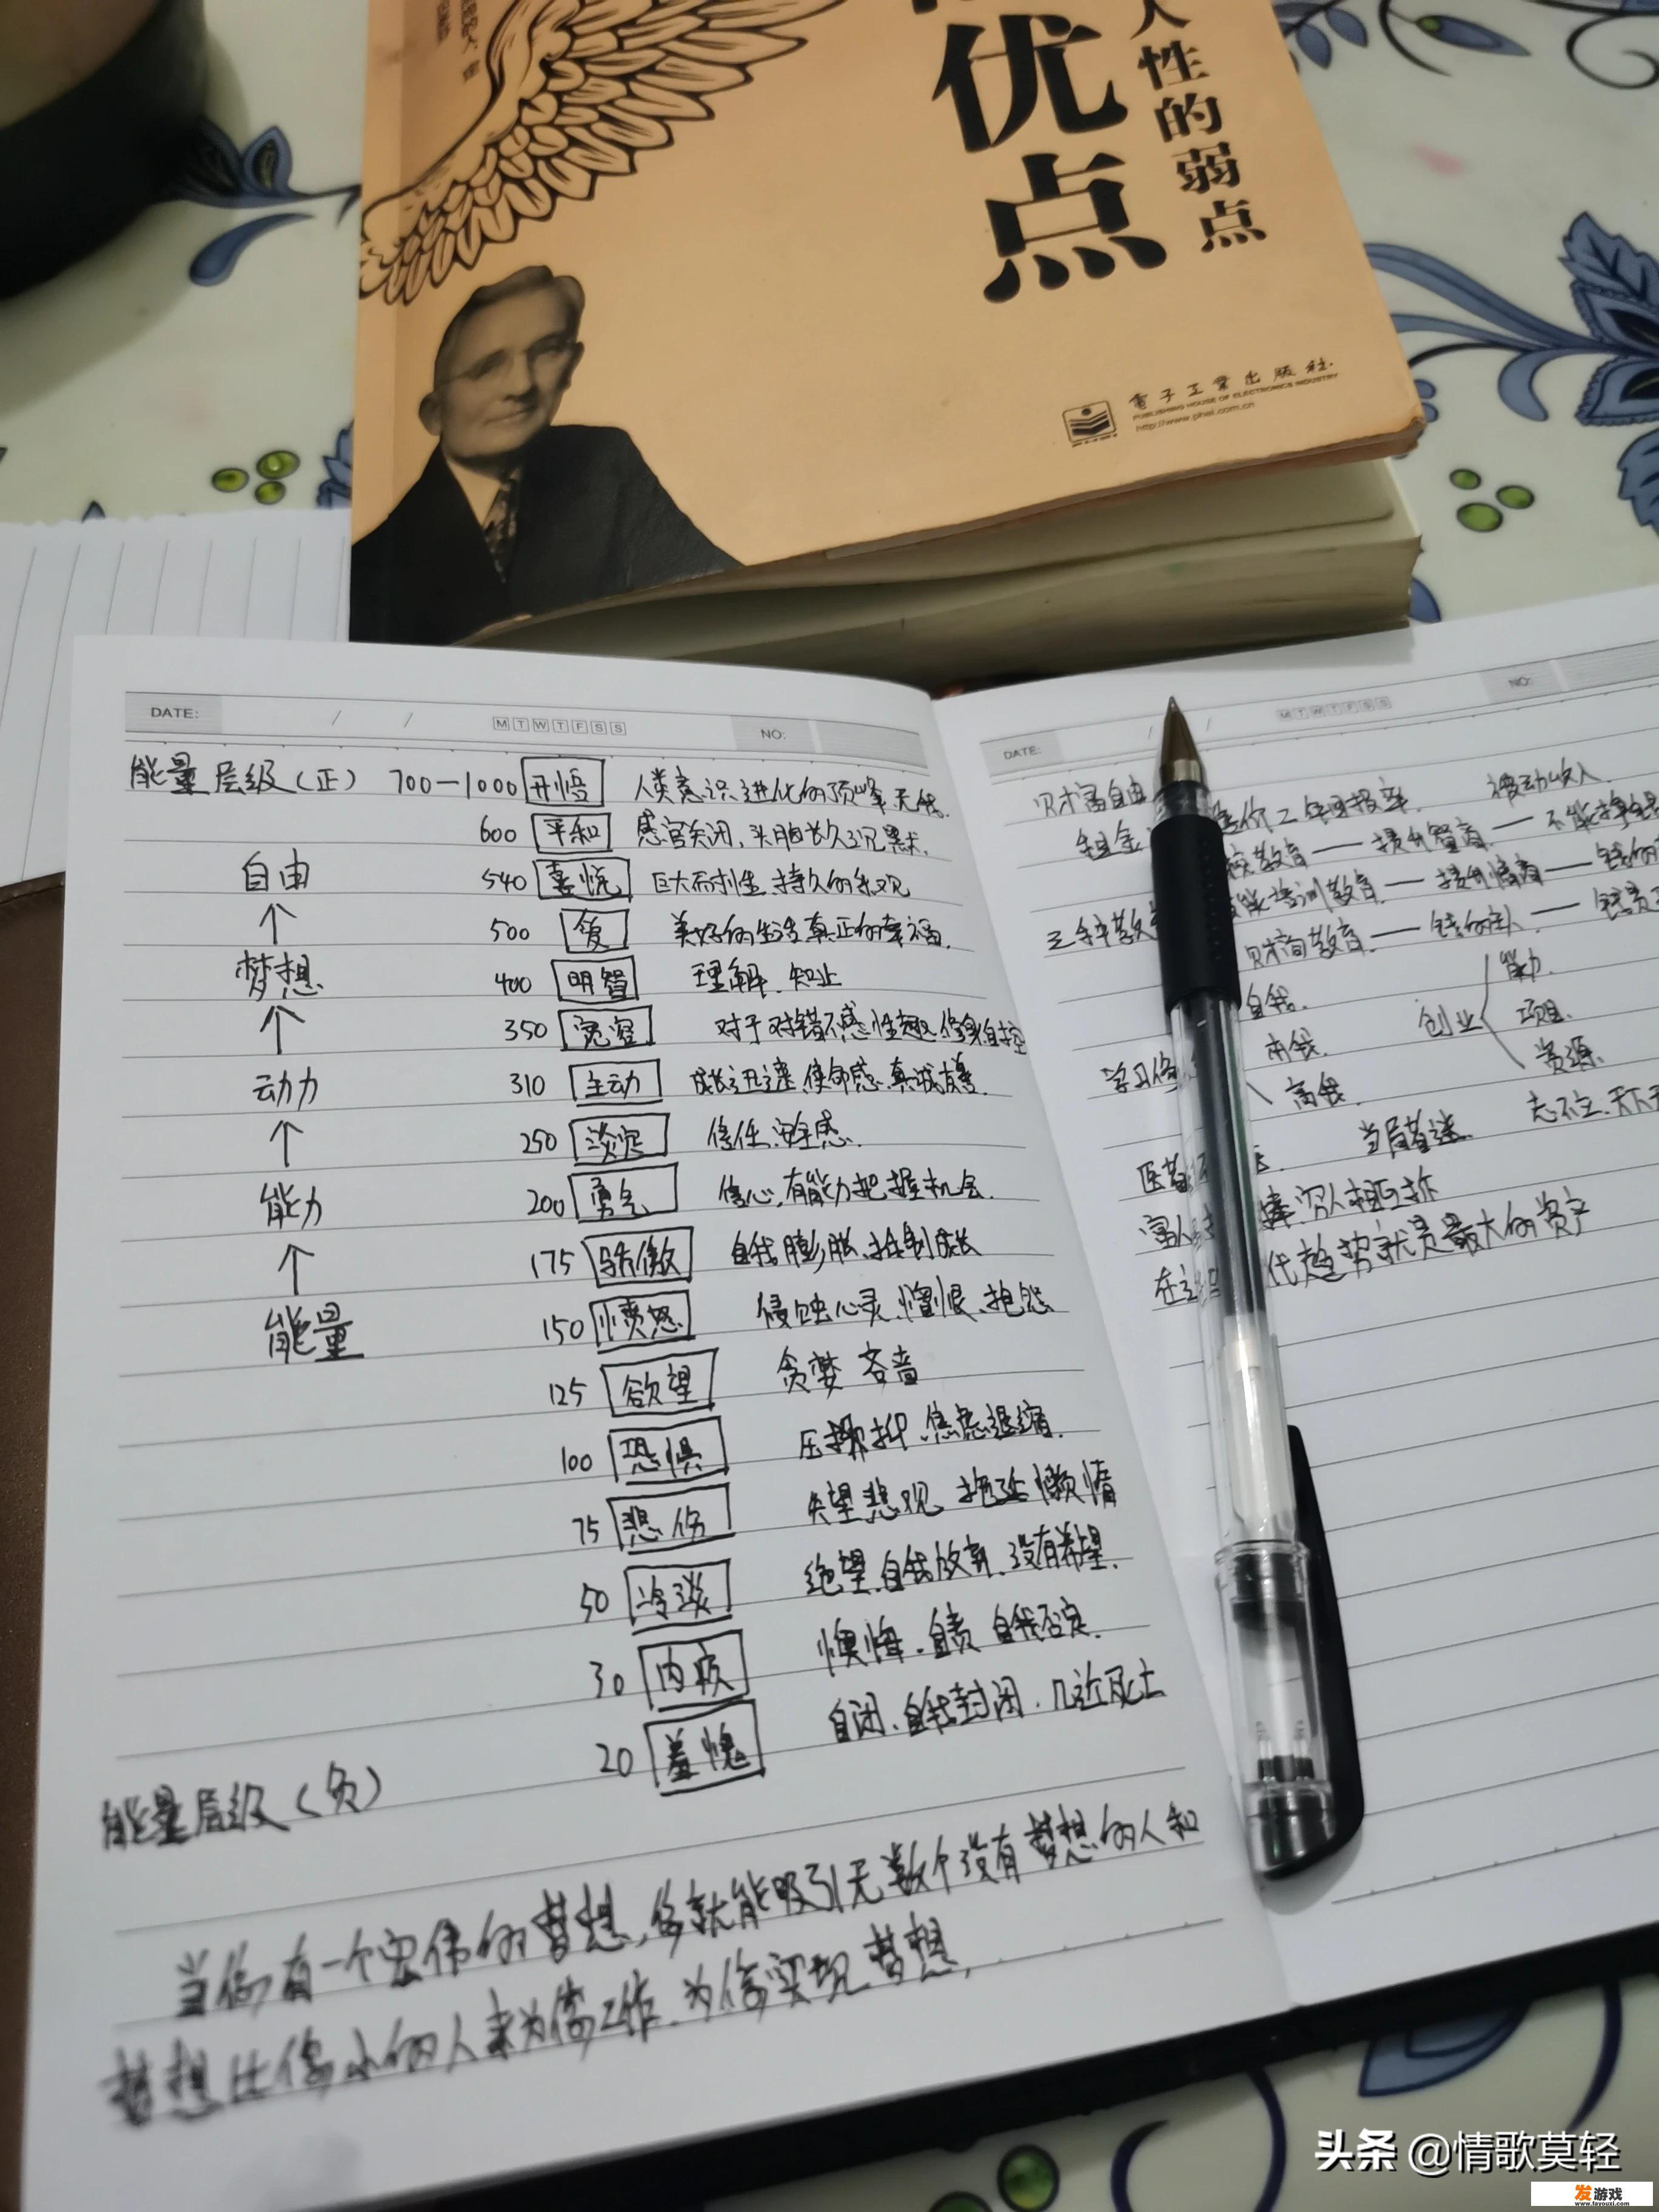 优点
人性的弱点
電子工業出版社
PUBLISHING HOUSE OF ELECTRONICS INDUSTRY
http://www.phei.com.cn
DATE: / / M T W T F S S NO:
能量层级(正) 700—1000 开悟 人类意识进化的顶峰,无我.
600 平和 感官关闭,头脑长久沉默.
自由 540 喜悦 巨大耐性,持久的乐观
500 爱 美好的生活,真正的幸福.
梦想 400 明智 理解、知止
350 宽容 对于对错不感性趣,修身自控
动力 310 主动 成长迅速,使命感,真诚友善.
250 淡定 信任、安全感.
能力 200 勇气 信心,有能力把握机会.
175 骄傲 自我膨胀,抵制成长
能量 150 愤怒 侵蚀心灵,憎恨、抱怨
125 欲望 贪婪 吝啬
100 恐惧 压抑、焦虑退缩.
75 悲伤 失望悲观,拖延懒惰
50 冷淡 绝望、自我放弃、没有希望.
30 内疚 懊悔、自责 自我否定.
20 羞愧 自闭、自我封闭、几近死亡
能量层级(负)
当你有一个宏伟的梦想,你就能吸引无数个没有梦想的人和
梦想比你小的人来为你工作.为你实现梦想,
DATE: / M T W T F S S NO:
财富自由 被动收入
租金
教育——提升智商——不能挣钱
三种教 技能培训教育——提升情商——
财商教育——
自我. 能力.
创业 项目.
学习 资源.
高我.
当局者迷. 志不立,天下
医者不
富人 穷人相互拆
在这 代趋势就是最大的资产
头条 @情歌莫轻
发游戏
www.fayouxi.com